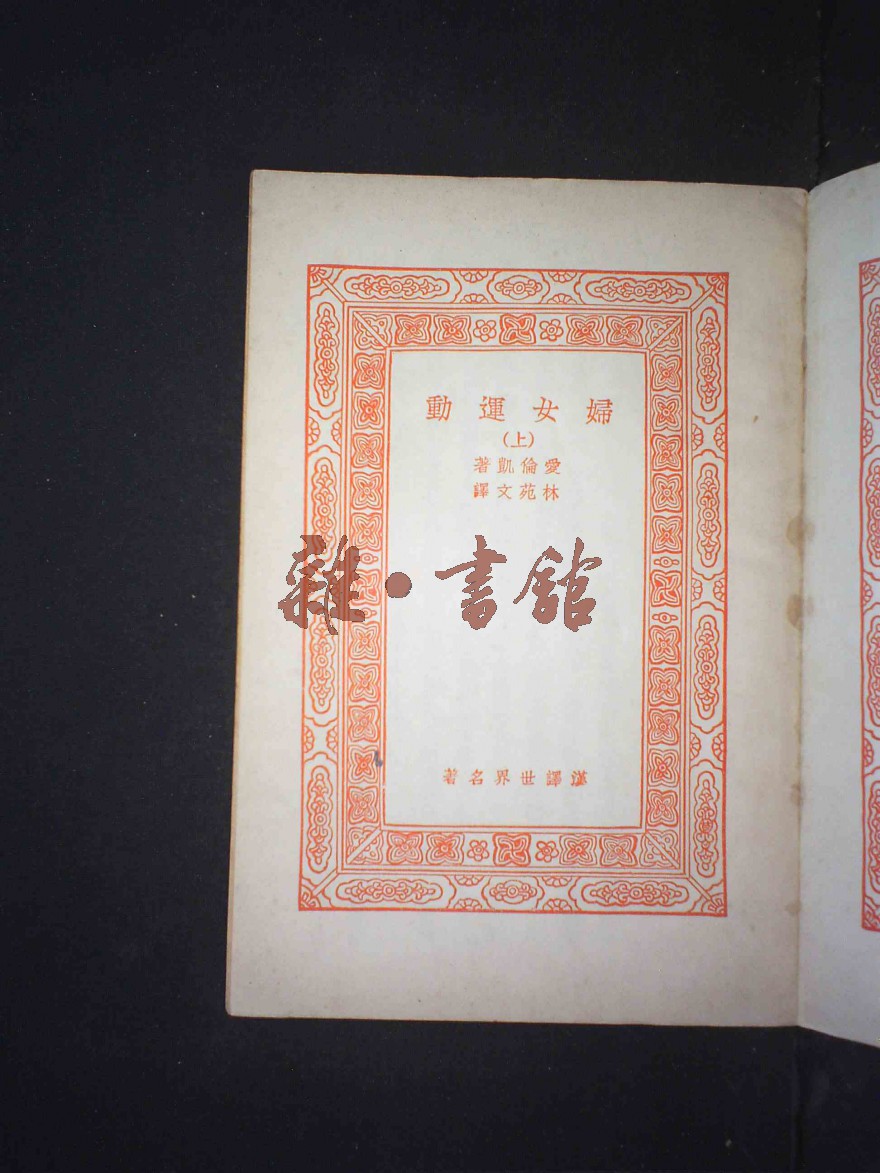 婦女運動
(上)
愛倫凱著
林苑文譯
雜·書館
漢譯世界名著